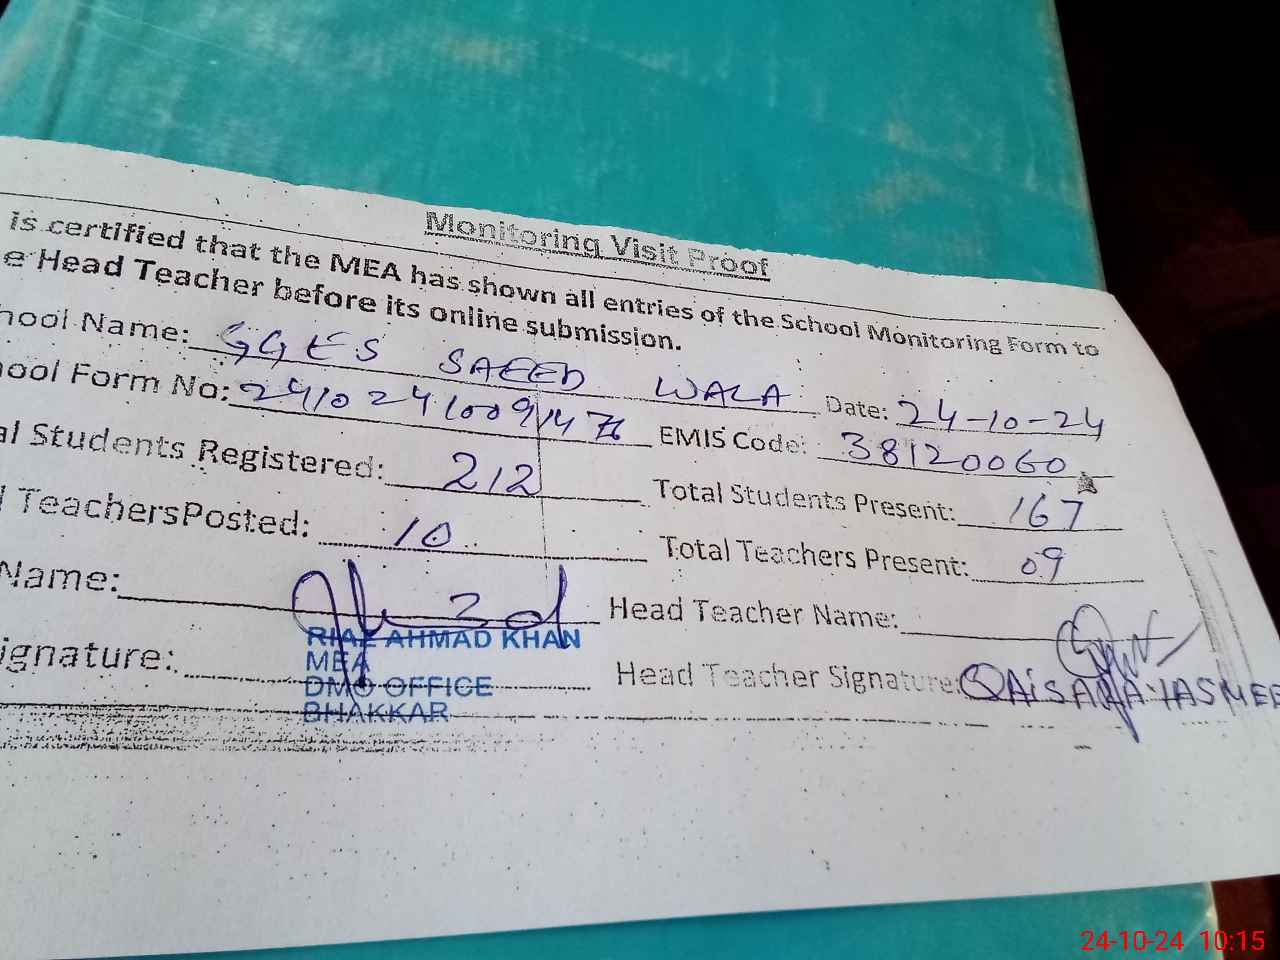 Monitoring Visit Proof
is certified that the MEA has shown all entries of the School Monitoring Form to
e Head Teacher before its online submission.
hool Name: GGES SAEED WALA Date: 24-10-24
ool Form No: EMIS Code: 38120060
al Students Registered: 212 Total Students Present: 167
l TeachersPosted: 10 Total Teachers Present: 09
Name: Head Teacher Name:
RIAZ AHMAD KHAN
ignature: Head Teacher Signature:
MEA
DMO OFFICE
BHAKKAR
24-10-24 10:15